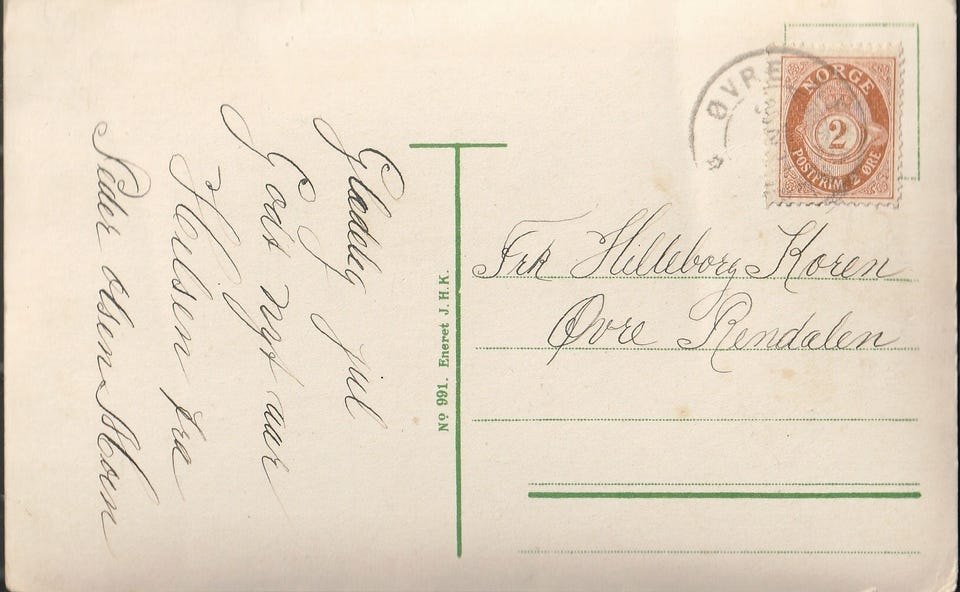 Glædelig jul
Godt nyt aar
Hilsen fra
Peder Olsen Moen
No 991. Eneret J. H. K.
ØVRE
NORGE
2
POSTFRIM. 2 ØRE
Frk Hilleborg Koren
Øvre Rendalen